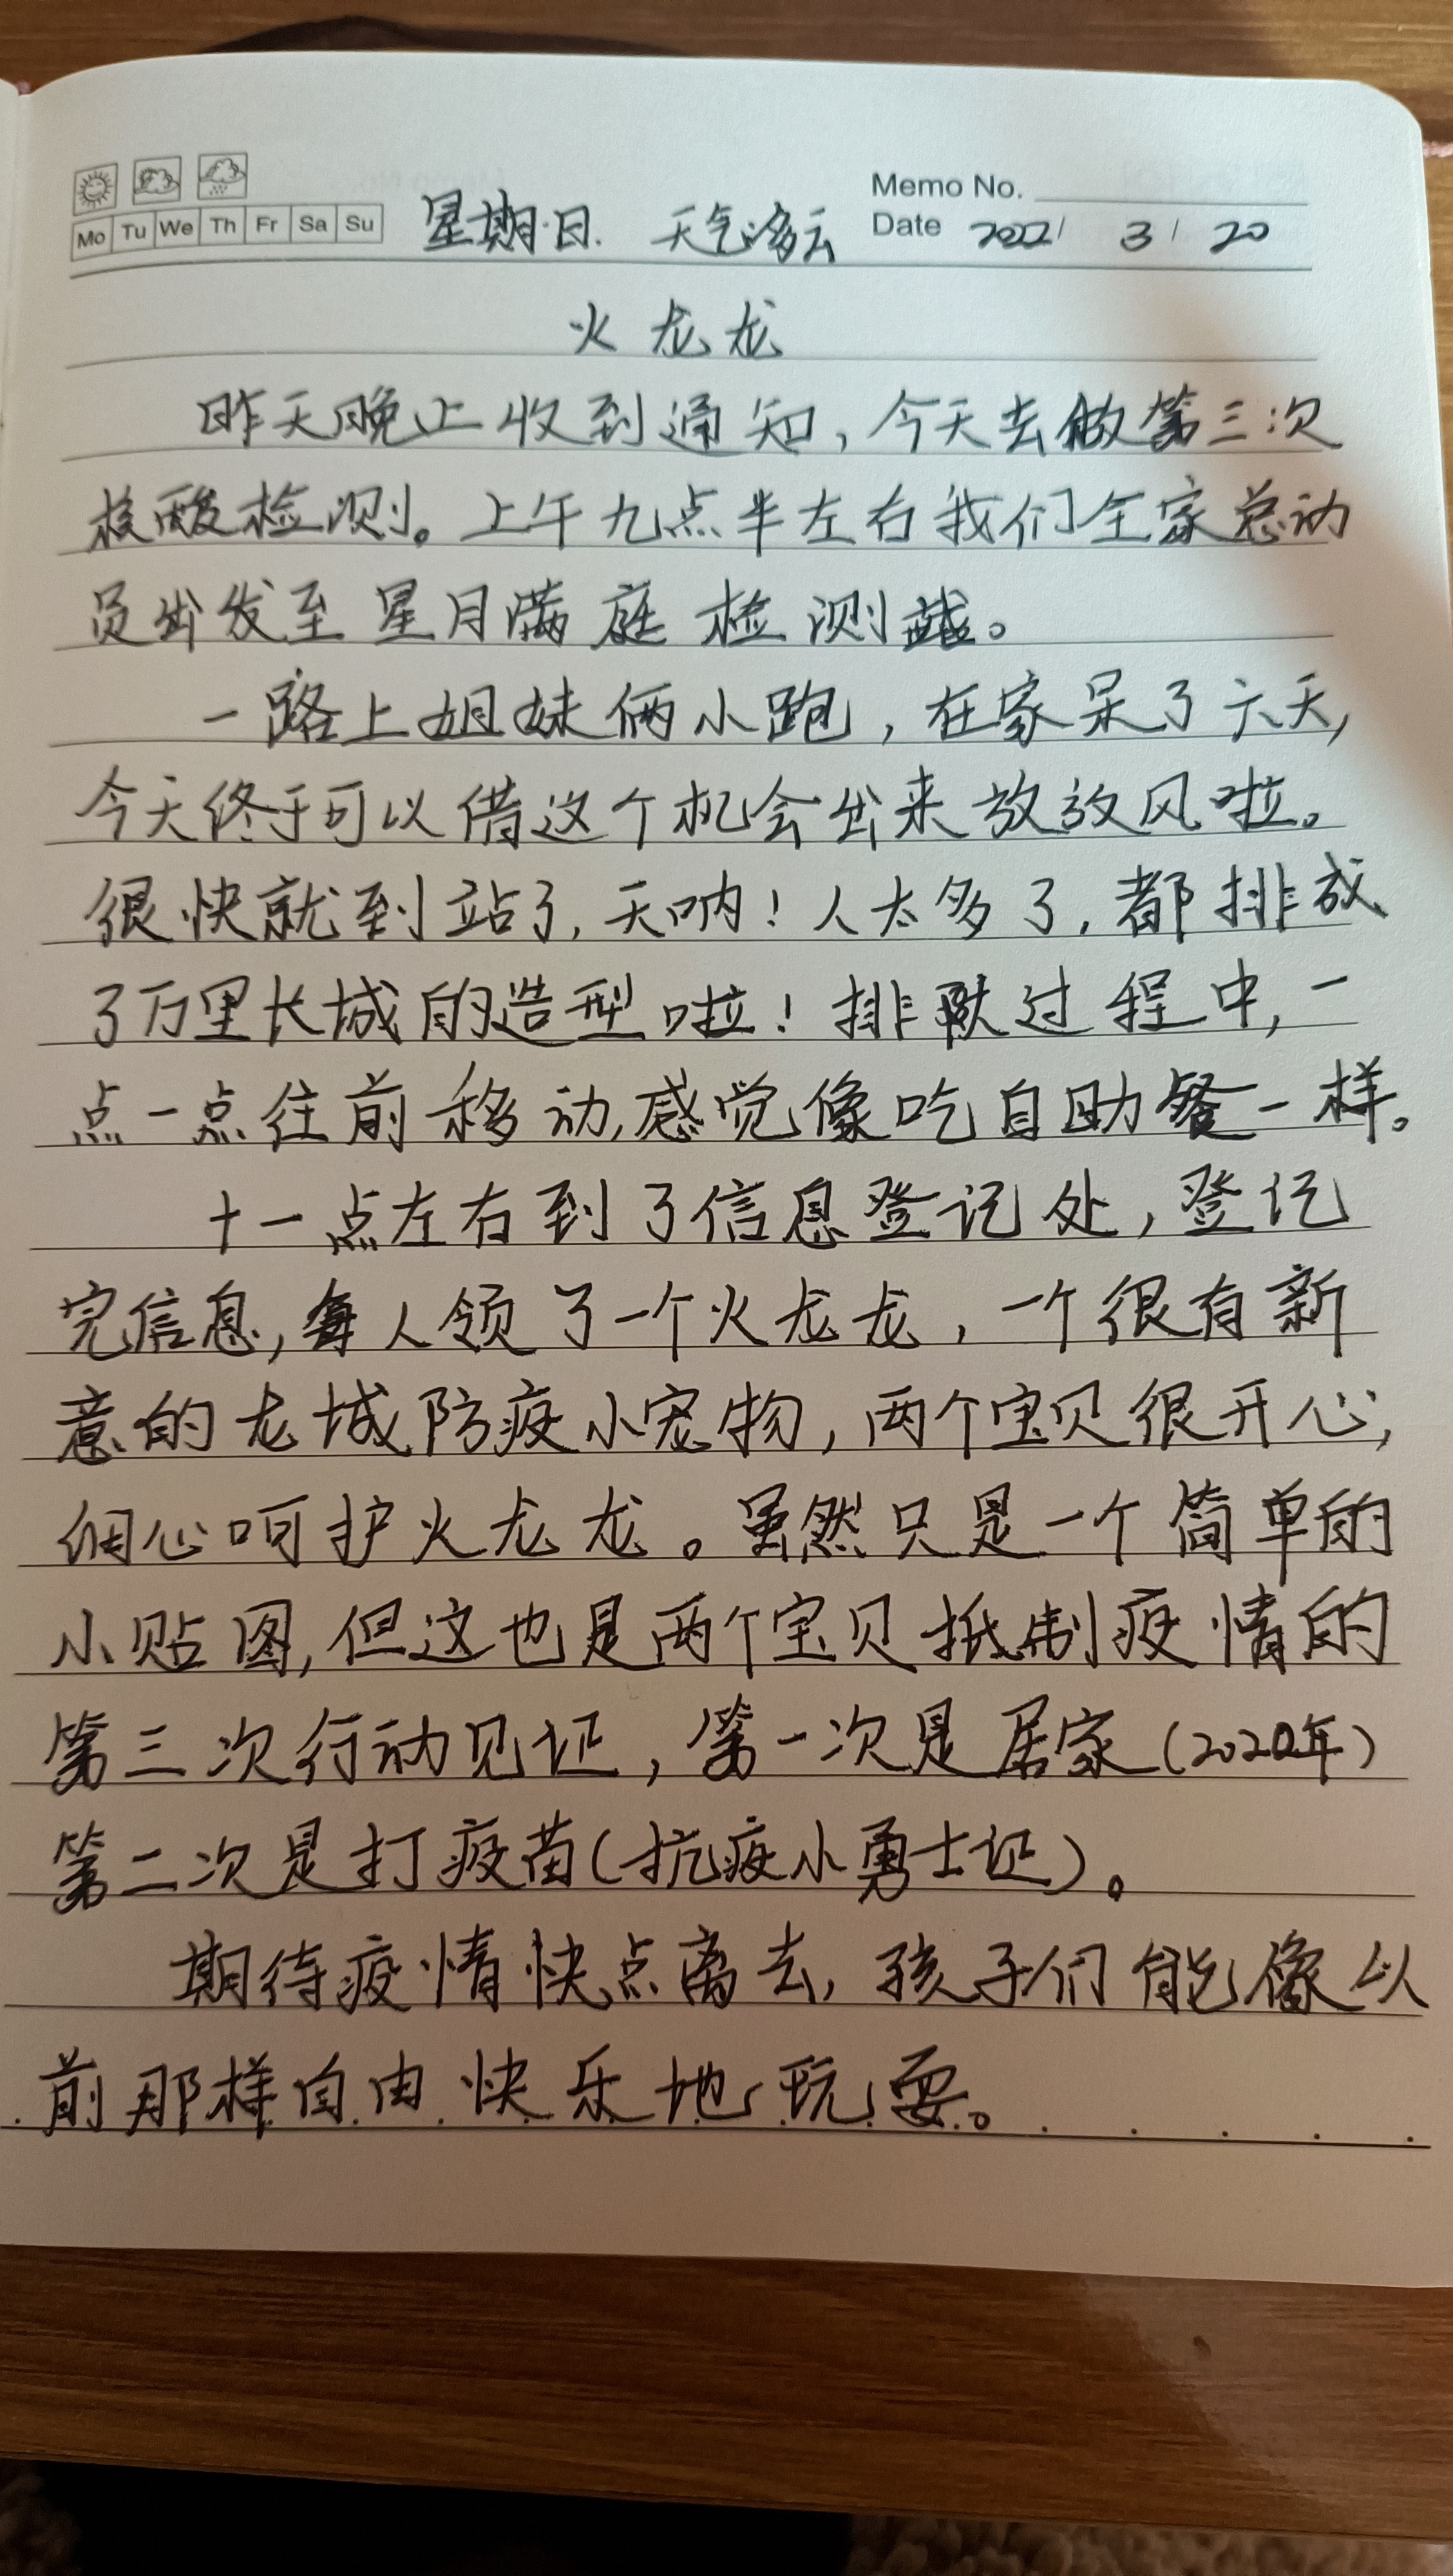 Memo No.
Mo Tu We Th Fr Sa Su 星期日. 天气多云 Date 2022/ 3 / 20
火龙龙
昨天晚上收到通知,今天去做第三次
核酸检测。上午九点半左右我们全家总动
员出发至星月满庭检测。
一路上姐妹俩小跑,在家呆了六天,
今天终于可以借这个机会出来放放风啦。
很快就到站了,天呐!人太多了,都排成
了万里长城的造型啦!排队过程中,一
点一点往前移动,感觉像吃自助餐一样。
十一点左右到了信息登记处,登记
完信息,每人领了一个火龙龙,一个很有新
意的龙城防疫小宠物,两个宝贝很开心,
细心呵护火龙龙。虽然只是一个简单的
小贴图,但这也是两个宝贝抵制疫情的
第三次行动见证,第一次是居家(2020年)
第二次是打疫苗(抗疫小勇士证)。
期待疫情快点离去,孩子们能像以
前那样自由快乐地玩耍。